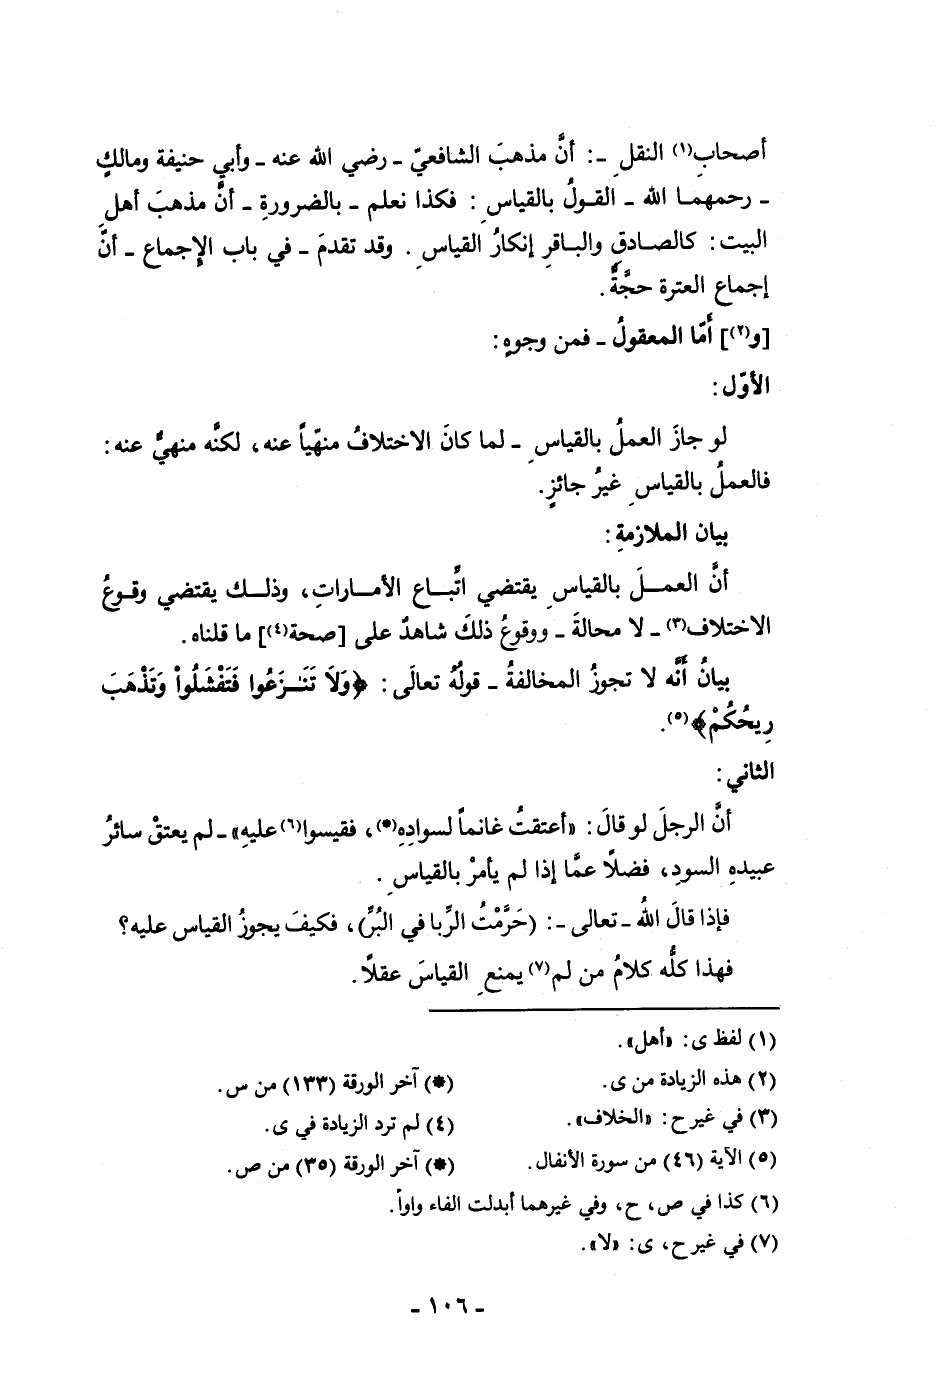 أصحابِ(١) النقلِ ـ: أنَّ مذهبَ الشافعيّ ـ رضي الله عنه ـ وأبي حنيفة ومالكٍ
ـ رحمهما الله ـ القولُ بالقياسِ : فكذا نعلم ـ بالضرورةِ ـ أنَّ مذهبَ أهلِ
البيت: كالصادقِ والباقرِ إنكارُ القياسِ . وقد تقدمَ ـ في باب الإِجماع ـ أنَّ
إجماع العترة حجَّةٌ.
[و(٢)] أَمّا المعقولُ ـ فمن وجوهٍ:
الأوّل:
لو جازَ العملُ بالقياسِ ـ لما كانَ الاختلافُ منهّياً عنه، لكنَّه منهيٌّ عنه:
فالعملُ بالقياسِ غيرُ جائزٍ.
بيان الملازمةِ:
أنَّ العمـلَ بالقياسِ يقتضي اتِّبـاع الأمـاراتِ، وذلـك يقتضي وقـوعُ
الاختلاف(٣) ـ لا محالةَ ـ ووقوعُ ذلكَ شاهدٌ على [صحة(٤)] ما قلناه.
بيانُ أَنَّه لا تجوزُ المخالفةُ ـ قولُهُ تعالَى: ﴿وَلَا تَنَـٰزَعُوا فَتَفْشَلُواْ وَتَذْهَبَ
رِيحُكُمْ﴾(٥).
الثاني:
أنَّ الرجلَ لو قالَ: «أعتقتُ غانماً لسوادِهِ(*)، فقيسوا(٦) عليهِ» ـ لم يعتقْ سائرُ
عبيدهِ السودِ، فضلًا عمَّا إذا لم يأمرْ بالقياسِ .
فإذا قالَ اللهُ ـ تعالى ـ: (حَرَّمْتُ الرِّبا في البُرِّ)، فكيفَ يجوزُ القياس عليه؟
فهذا كلُّه كلامُ من لم(٧) يمنعِ القياسَ عقلًا.
(١) لفظ ى: «أهل».
(٢) هذه الزيادة من ى.
(*) آخر الورقة (١٣٣) من س.
(٣) في غير ح: «الخلاف».
(٤) لم ترد الزيادة في ى.
(٥) الآية (٤٦) من سورة الأنفال.
(*) آخر الورقة (٣٥) من ص.
(٦) كذا في ص، ح، وفي غيرهما أبدلت الفاء واواً.
(٧) في غير ح، ى: «لا».
ـ ١٠٦ ـ